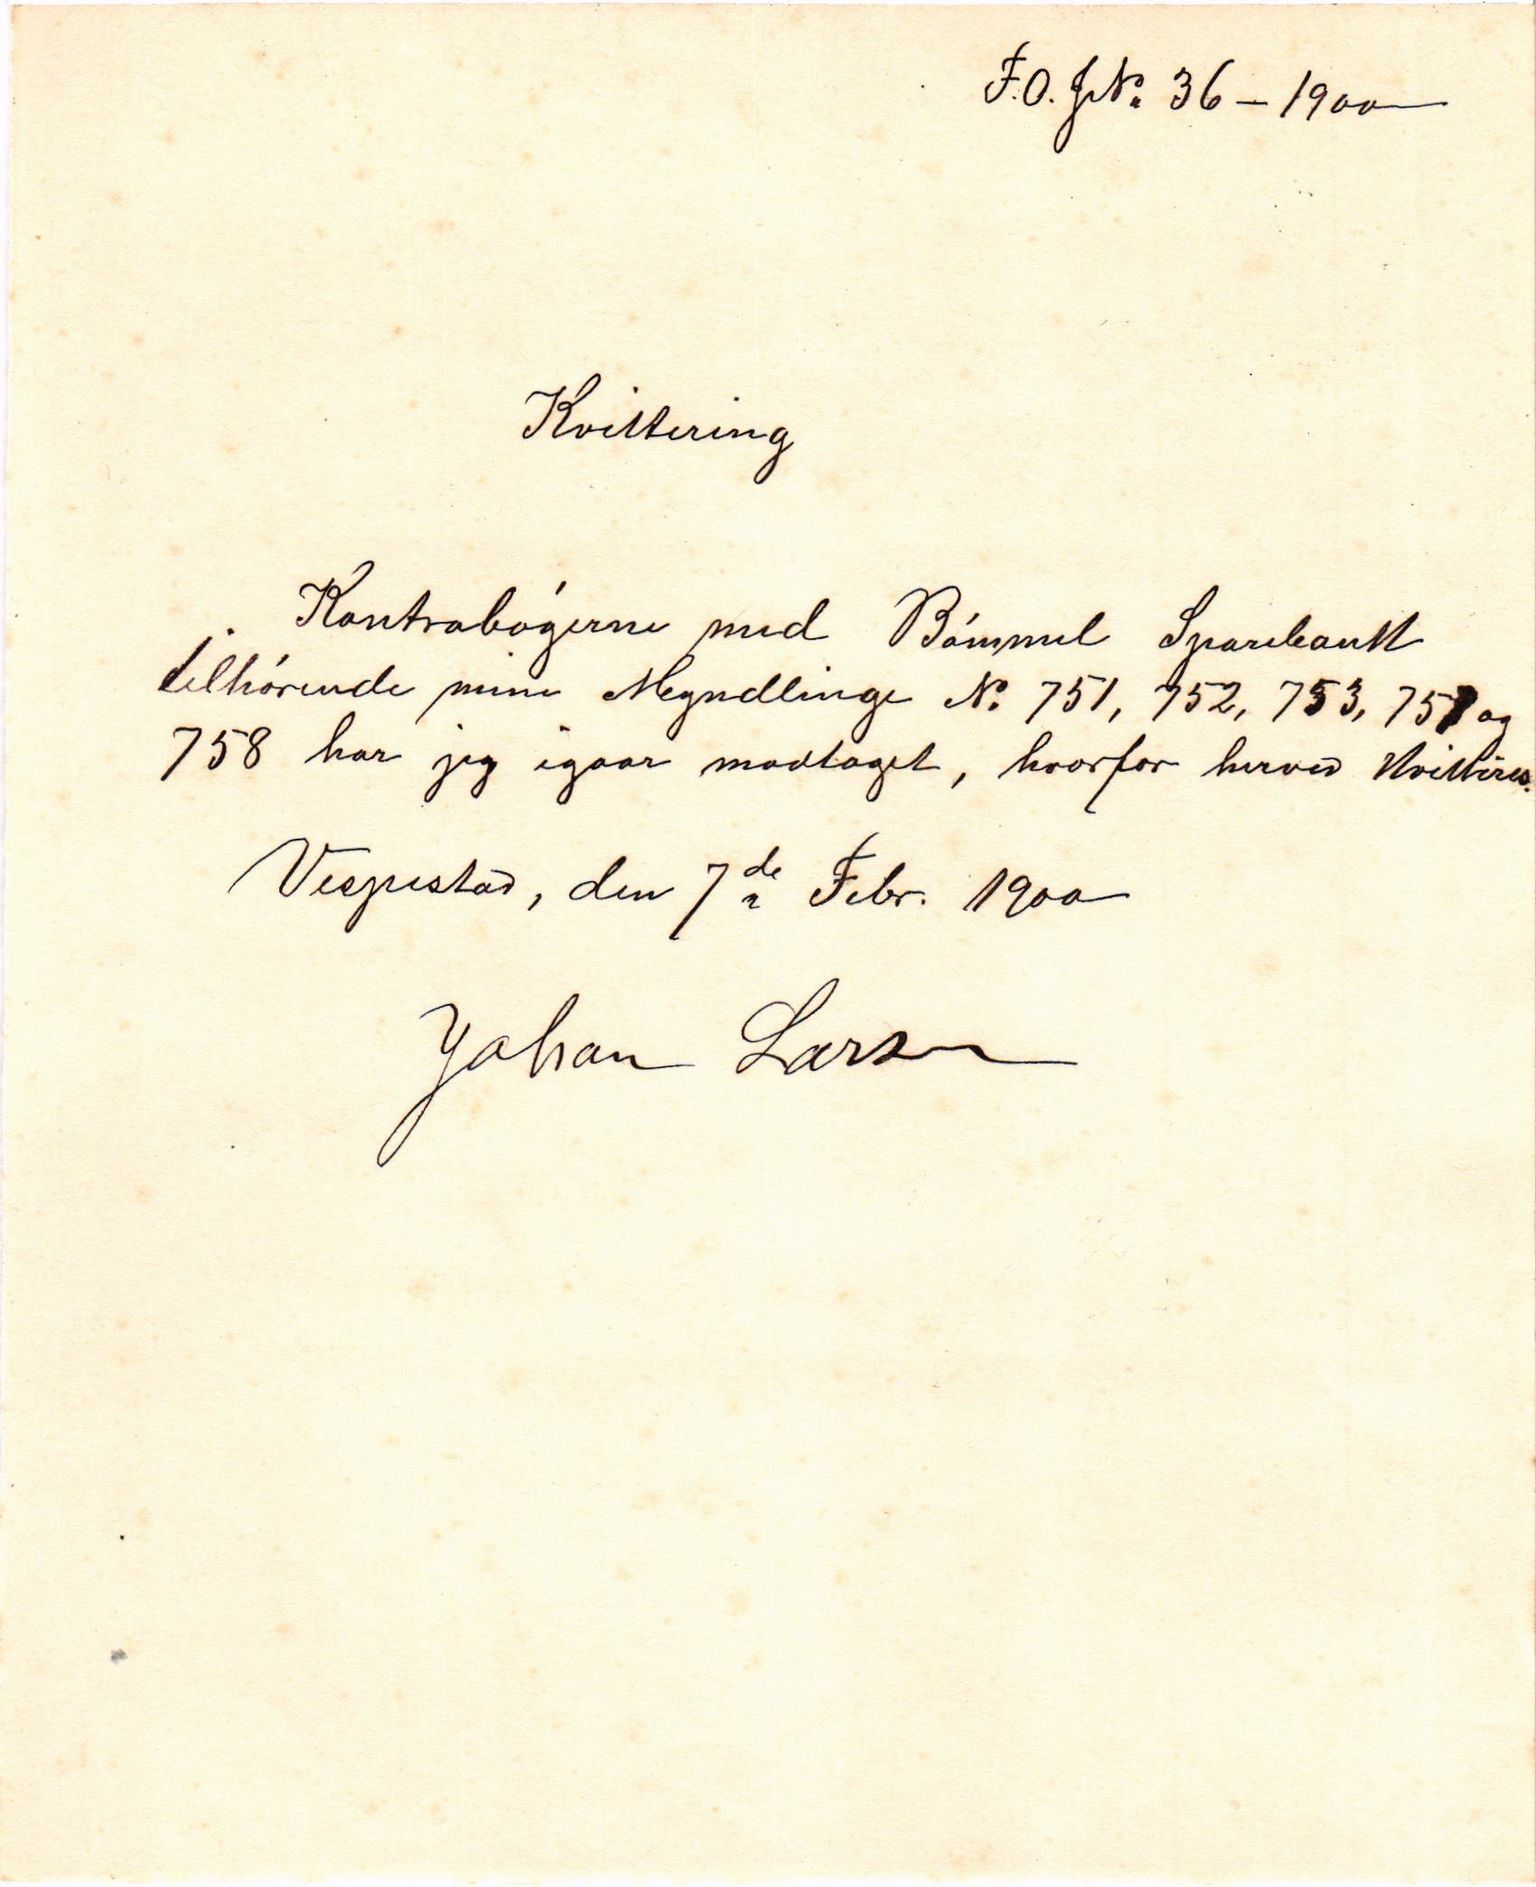 F.O. J№ 36 – 1900
Kvittering
Kontrabógerne med Bómmel Sparebank
tilhórende mine Mgyndlinge № 751, 752, 753, 757 og
758 har jeg igaar modtaget, hvorfor herved kvitteres.
Vespestad, den 7de Febr. 1900
Johan Larsen